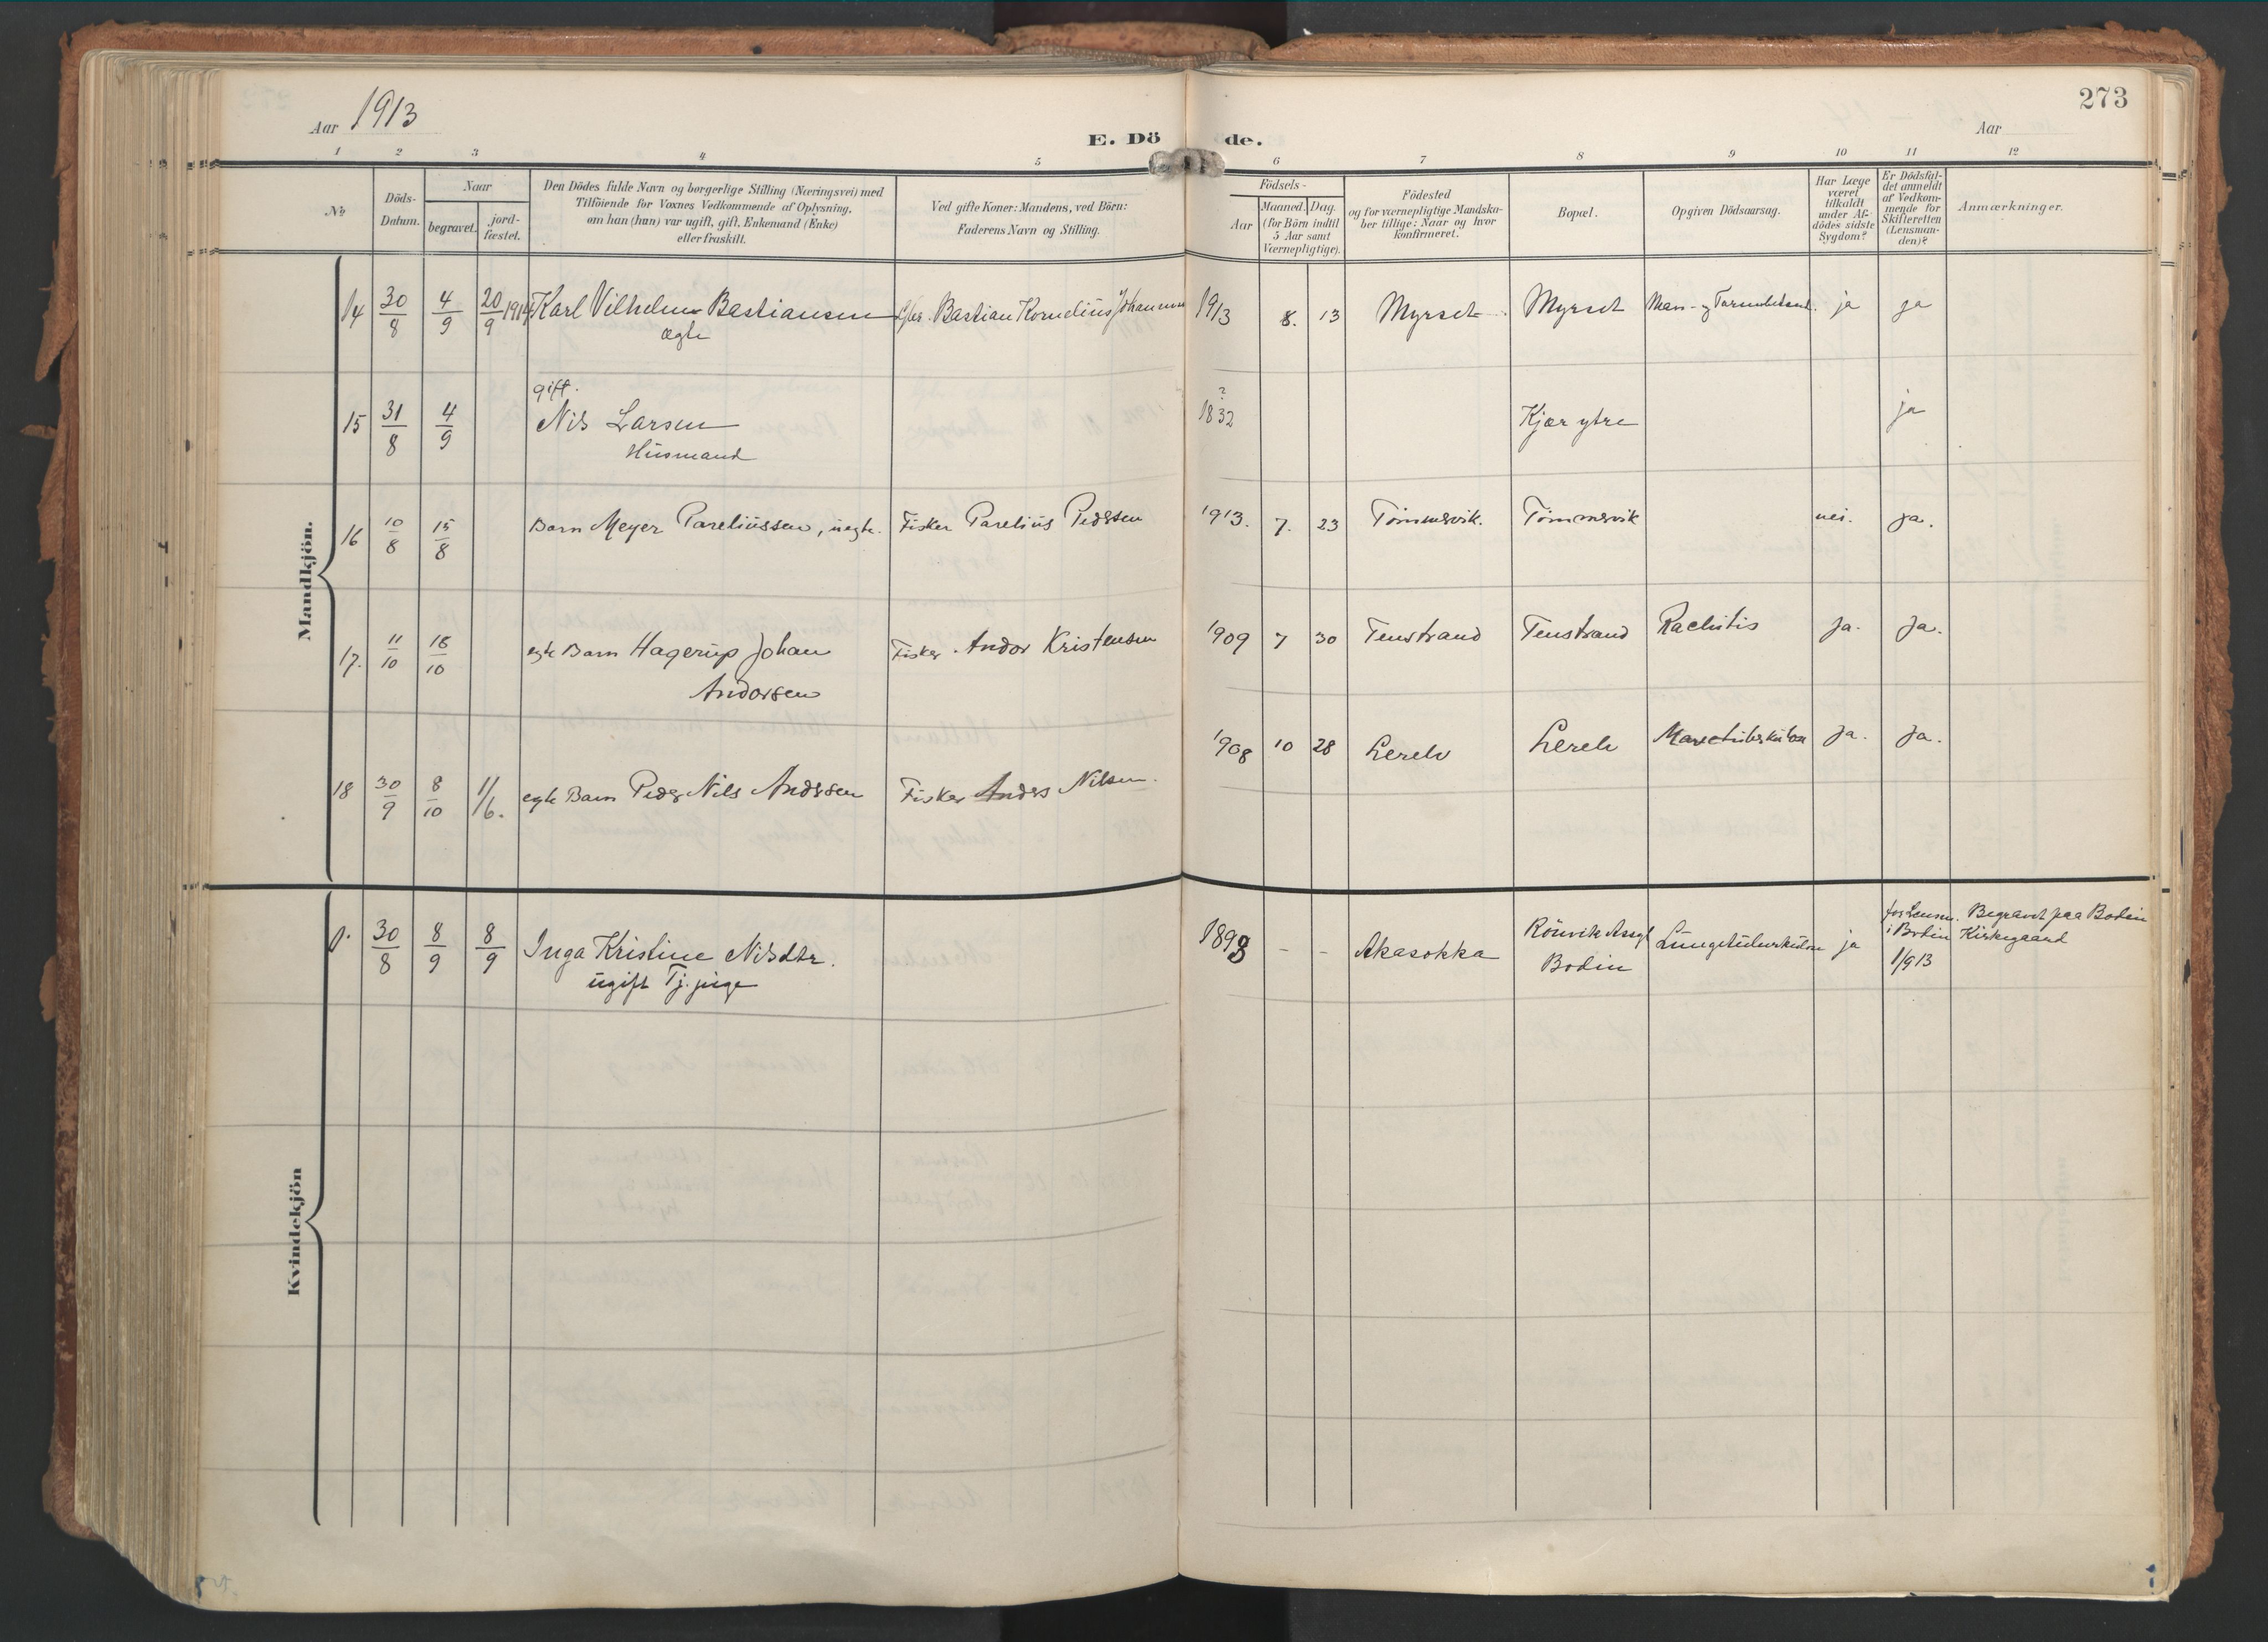 273
Aar 1913
Aar
E. Döde.
1 2 3 4 5 6 7 8 9 10 11 12
№
Döds-
Datum.
Naar
begravet.
jord-
fæstet.
Den Dödes fulde Navn og borgerlige Stilling (Næringsvei) med
Tilföiende for Voxnes Vedkommende af Oplysning,
om han (hun) var ugift, gift, Enkemand (Enke)
eller fraskilt.
Ved gifte Koner: Mandens, ved Börn:
Faderens Navn og Stilling.
Födsels-
Aar
Maaned. Dag.
(for Börn indtil
5 Aar samt
Værnepligtige).
Födested
og for værnepligtige Mandska-
ber tillige: Naar og hvor
konfirmeret.
Bopæl.
Opgiven Dödsaarsag.
Har Læge
været
tilkaldt
under Af-
dödes sidste
Sygdom?
Er Dödsfal-
det anmeldt
af Vedkom-
mende for
Skifteretten
(Lensman-
den)?
Anmærkninger.
Mandkjön.
14 30/8 4/9 20/9 1914 Karl Vilhelm Bastiansen Bastian Kornelius Johannsen 1913 8. 13 Myrset Myrset ja ja
ægte
gift.
15 31/8 4/9 Nils Larsen 1832 ? Kjær ytre ja
Husmand
16 10/8 15/8 Barn Meyer Pareliussen, uegte. Fisker Parelius Pedersen 1913. 7. 23 Tömmervik. Tömmervik nei. ja.
17. 11/10 18/10 egte Barn Hagerup Johan Fisker Andor Kristensen 1909 7 30 Tenstrand Tenstrand Rachitis ja. ja.
Andorsen
18 30/9 8/10 1/6. egte Barn Peder Nils Andersen Fisker Anders Nilsen. 1908 10 28 Lerelv Lerelv ja. ja.
Kvindekjön
1. 30/8 8/9 8/9 Inga Kristine Nilsdtr. 1898 - - Akasokka Rönvik Asyl Lungetuberkulose ja
ugift Tj. pige
Bodin
for Lensm.
i Bodin
1/9 13
Begravet paa Bodin
Kirkegaard